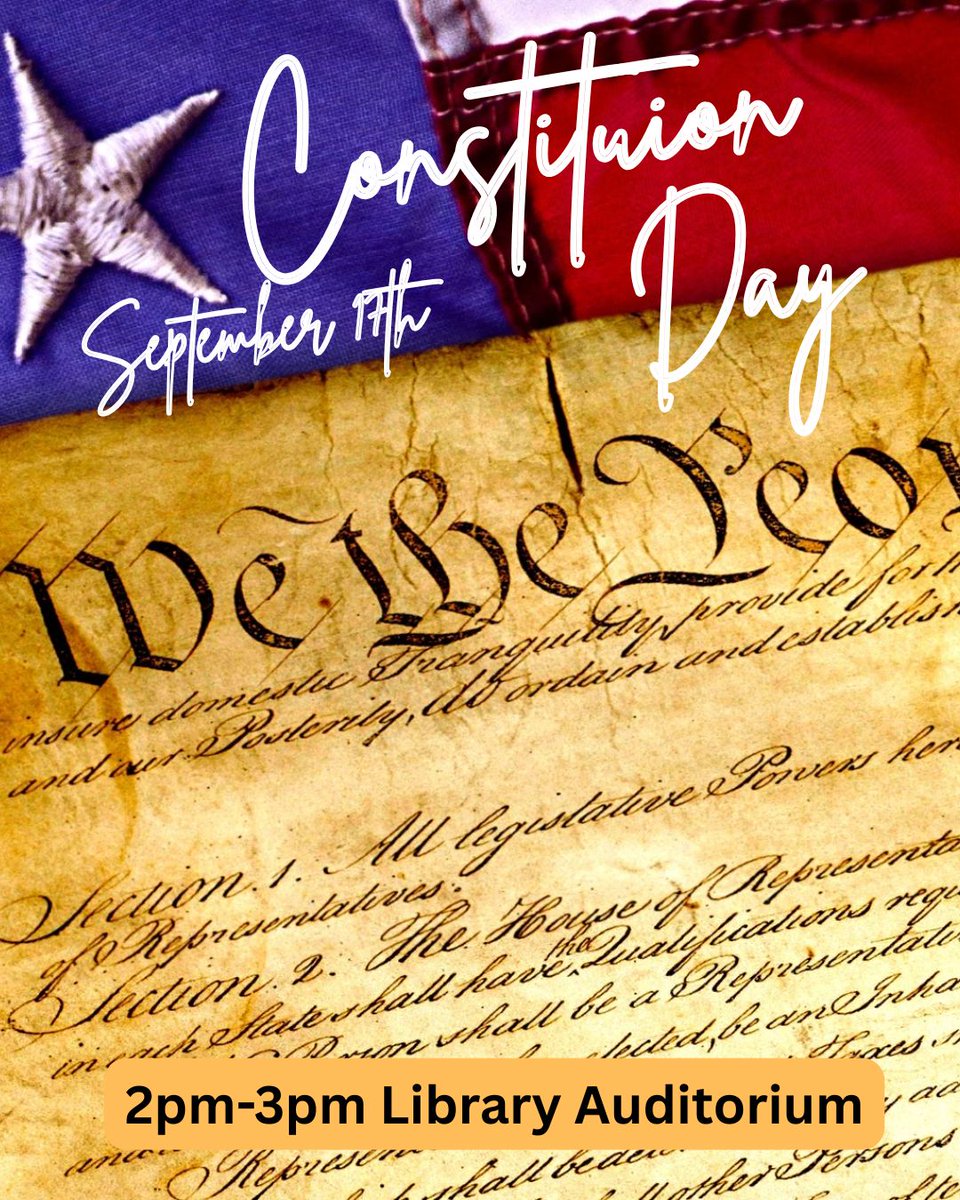 Constituion
Day
September 17th
We the Peop
insure domestic Tranquility, provide for
and our Posterity, do ordain and establish
Section. 1. All legislative Powers here
of Representatives.
Section. 2. The House of Representa
the
in each State shall have Qualifications requ
Person shall be a Representati
elected, be an Inha
Taxes
2pm-3pm Library Auditorium
Represent
other Persons